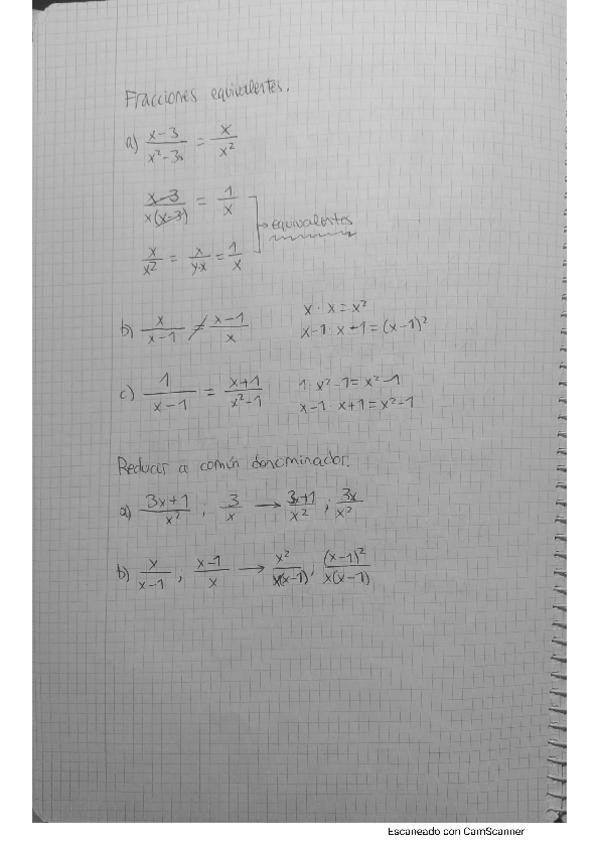 Fracciones equivalentes.
a) x-3/x²-3x = x/x²
x-3/x(x-3) = 1/x
→ equivalentes
x/x² = x/x·x = 1/x
b) x/x-1 ≠ x-1/x
x · x = x²
x-1 · x-1 = (x-1)²
c) 1/x-1 = x+1/x²-1
1 · x²-1 = x²-1
x-1 · x+1 = x²-1
Reducir a común denominador.
a) 3x+1/x² , 3/x → 3x+1/x² ; 3x/x²
b) x/x-1 , x-1/x → x²/x(x-1) , (x-1)²/x(x-1)
Escaneado con CamScanner